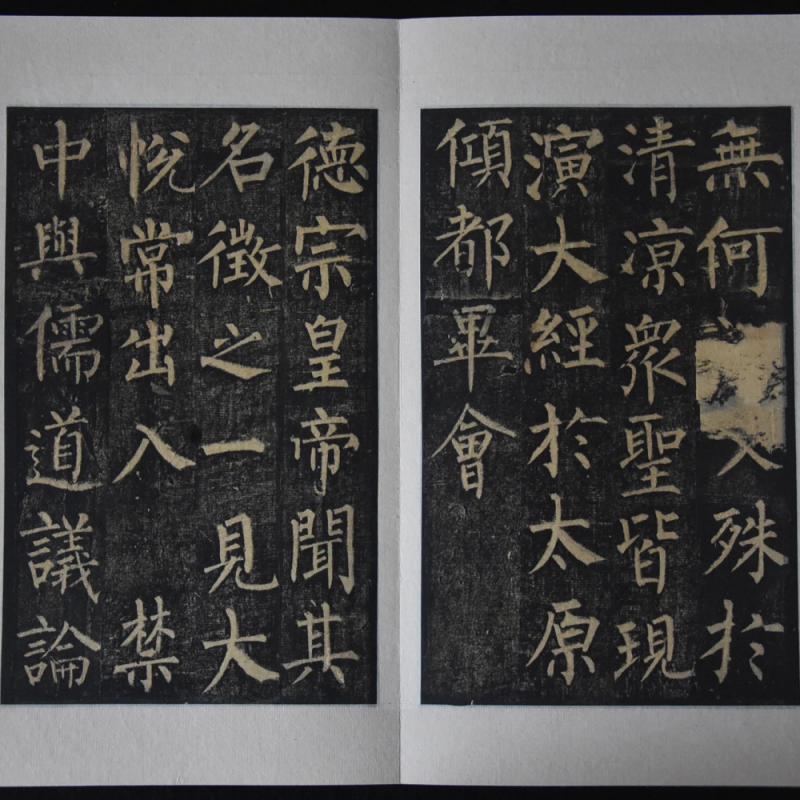 無何殊於
清凉衆聖皆現
演大經於太原
傾都畢會
徳宗皇帝聞其
名徵之一見大
悦常出入禁
中與儒道議論